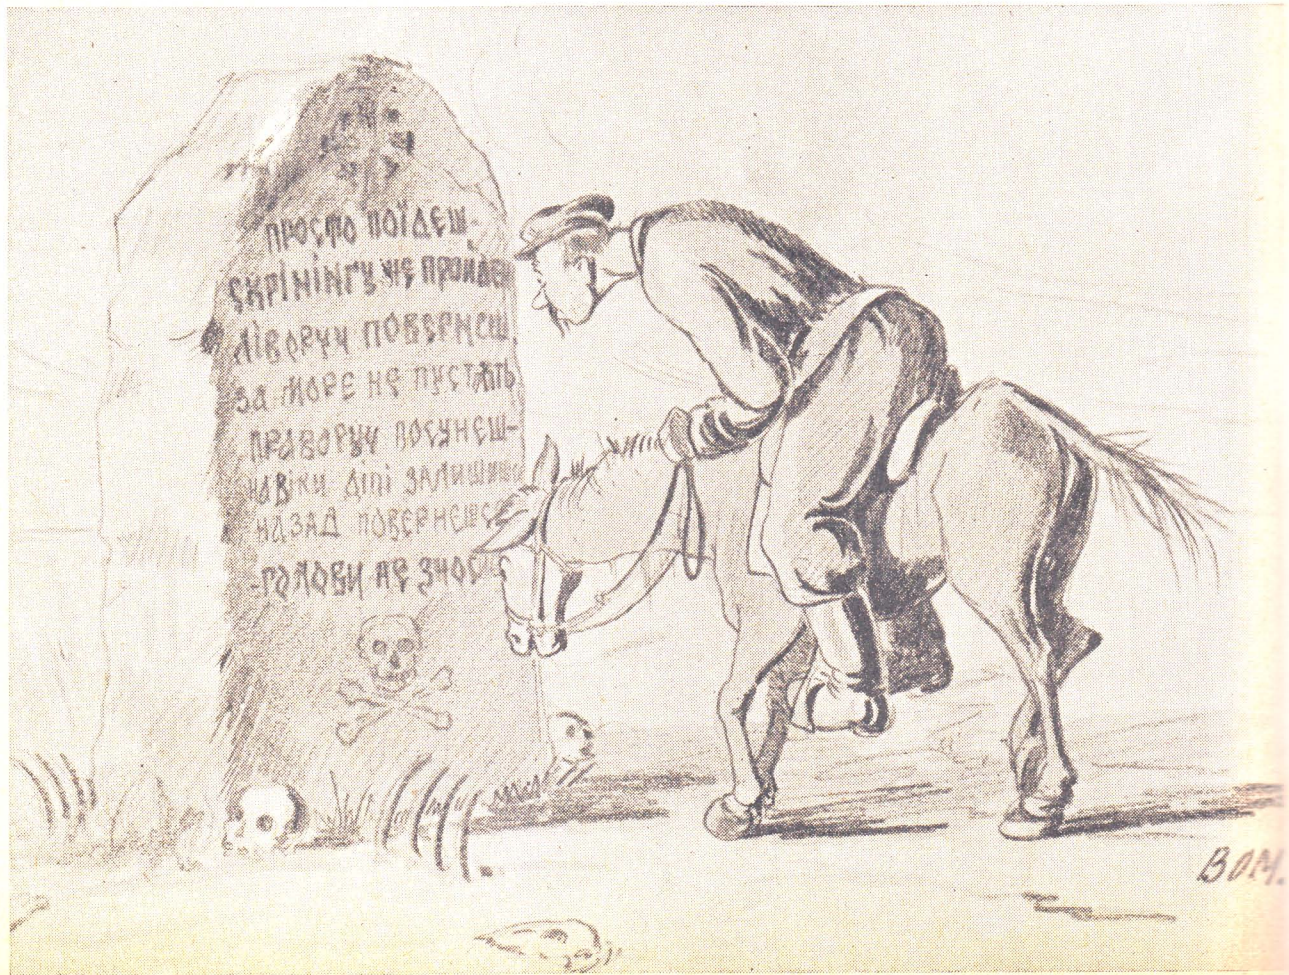 ПРОСТО ПОЇДЕШ-
СКРІНІНГУ НЕ ПРОЙДЕШ
ЛІВОРУЧ ПОВЕРНЕШ
ЗА МОРЕ НЕ ПУСТЯТЬ
ПРАВОРУЧ ПОСУНЕШ-
НАВІКИ ДІПІ ЗАЛИШИШ
НАЗАД ПОВЕРНЕШС
-ГОЛОВИ НЕ ЗНОС
ВОМ.